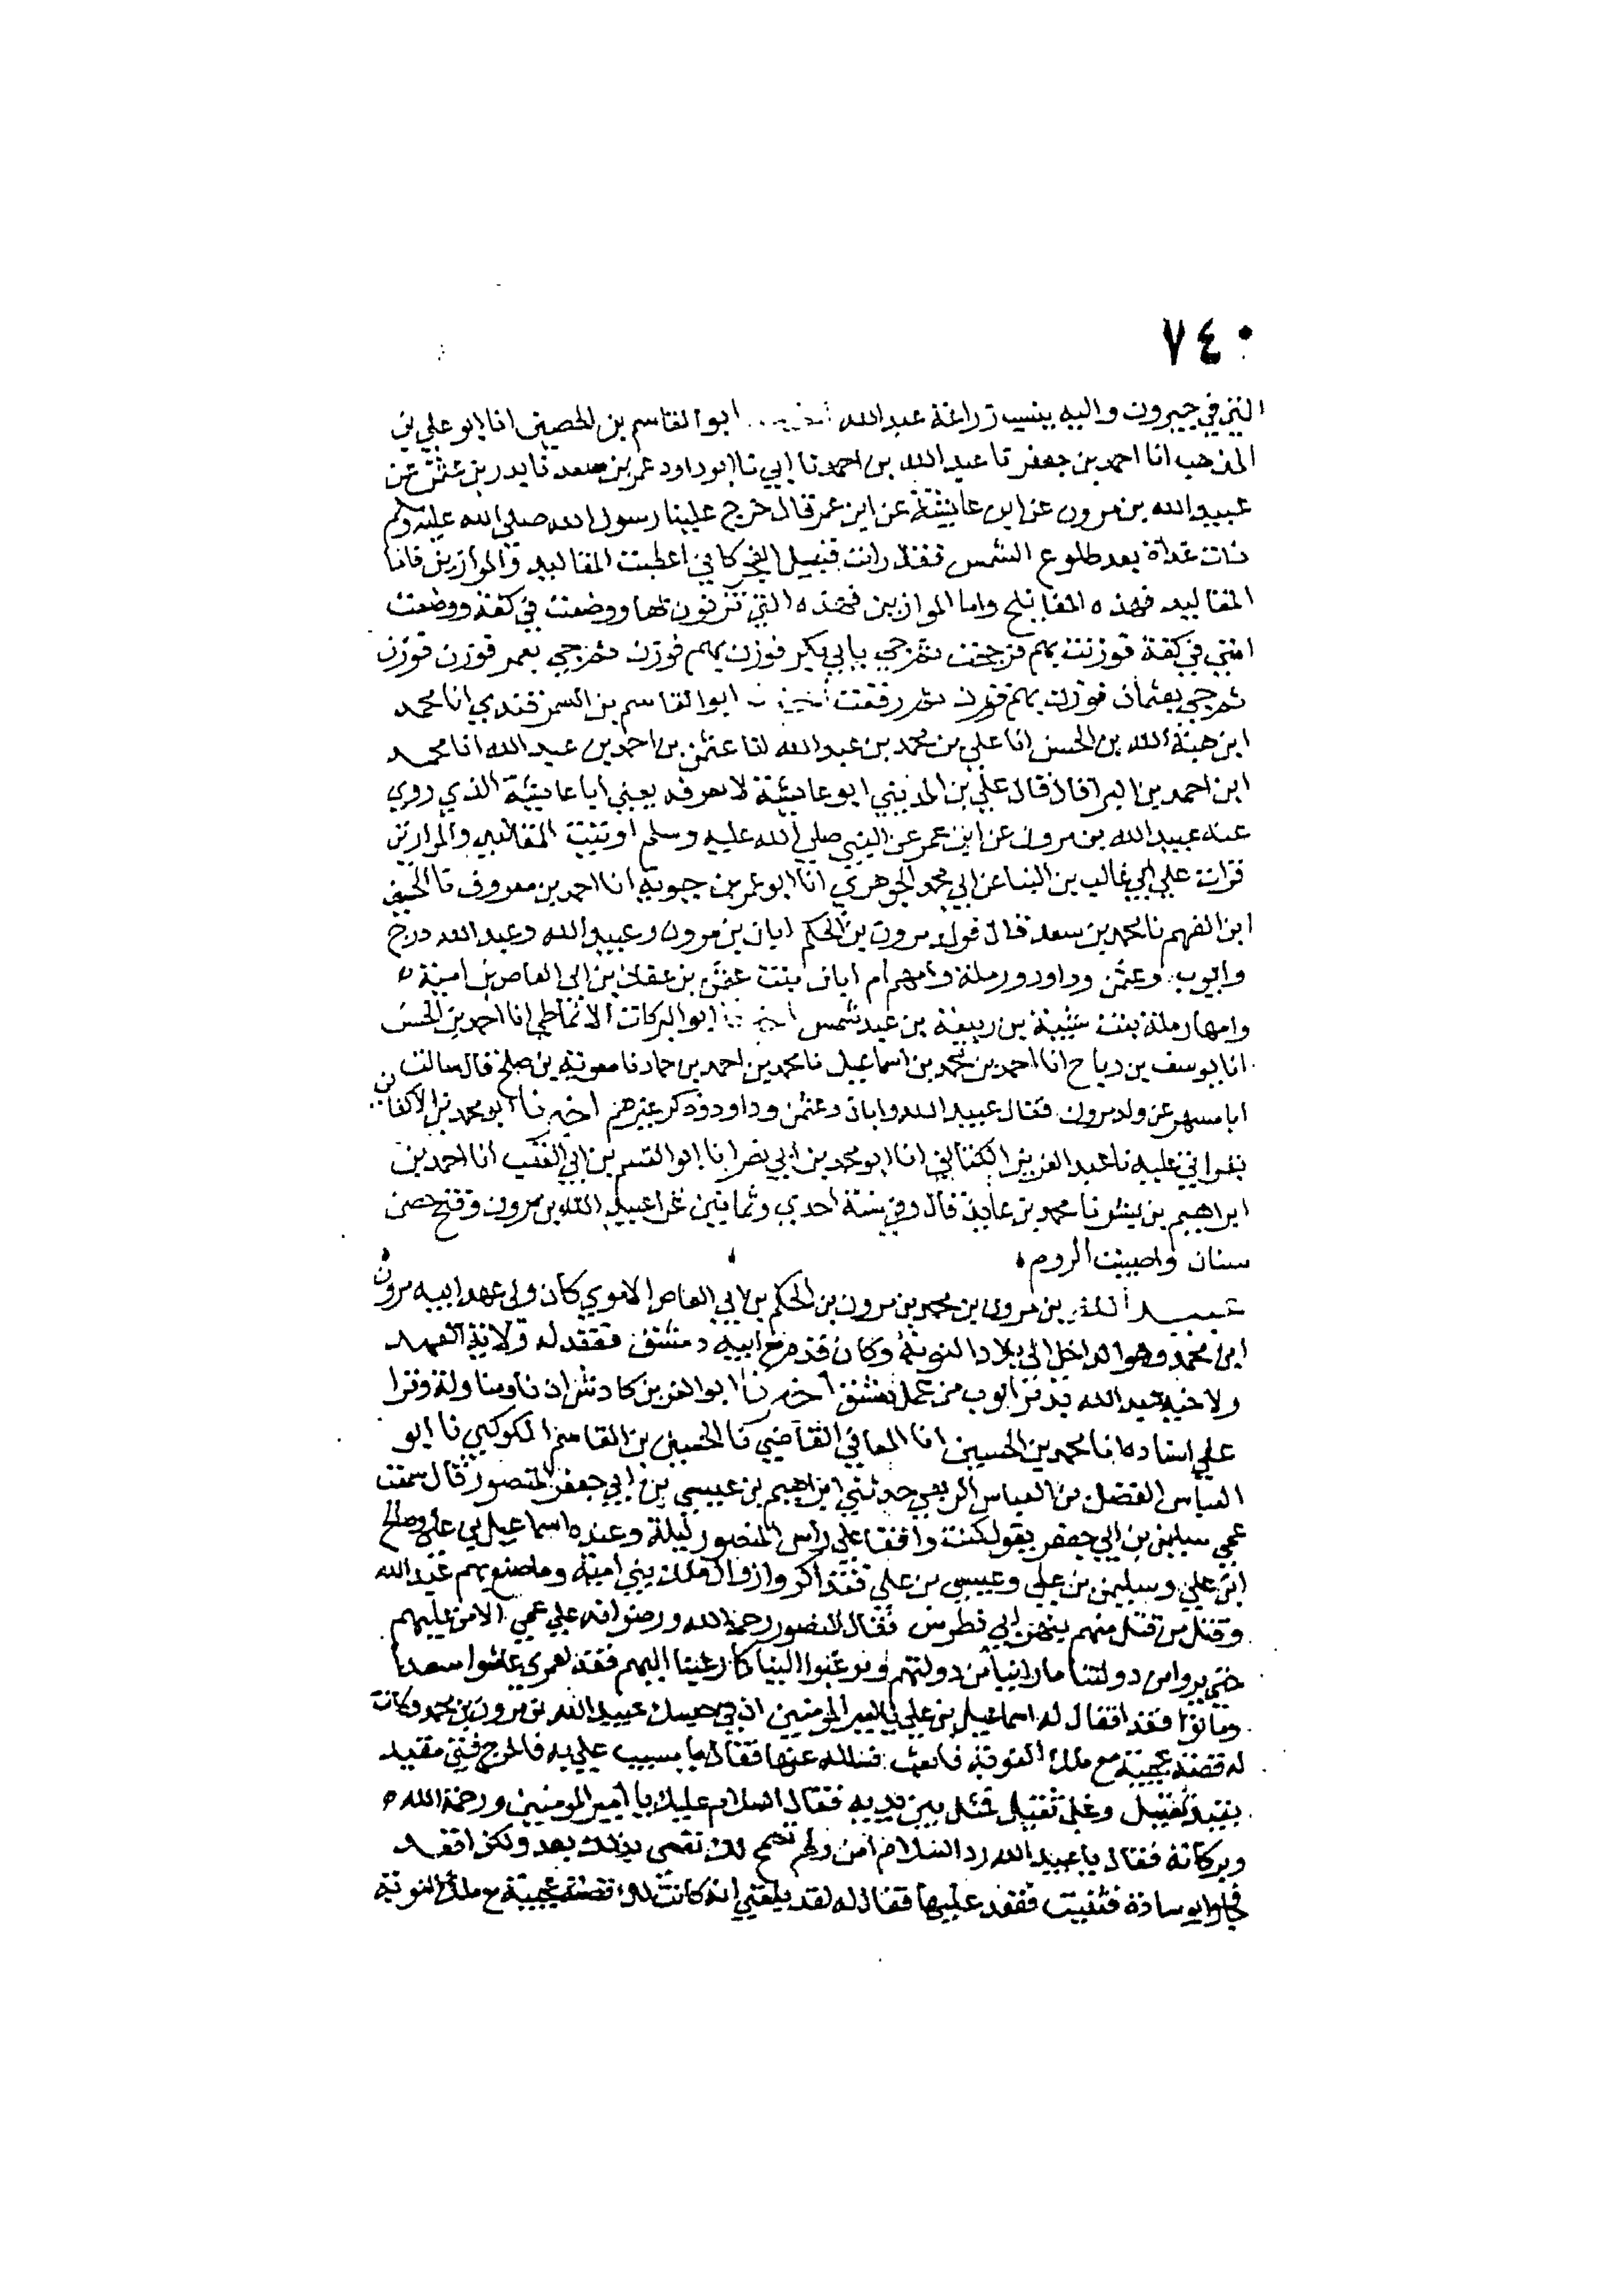 ٧٤٠
التي في جيرون واليه ينسب زراعة عبدالله أخبرنا ابوالقاسم بن الحصين انا ابو علي بن
المذهب انا احمد بن جعفر نا عبدالله بن احمد نا ابي نا ابوداود عمر بن سعد نا بدر بن عثمن عن
عبيدالله بن مرون عن ابي عايشة عن ابن عمر قال خرج علينا رسول الله صلى الله عليه وسلم
ذات غداة بعد طلوع الشمس فقال رايت قبيل الفجر كاني اعطيت المقاليد والموازين فاما
المقاليد فهذه المفاتيح واما الموازين فهذه التي تزنون بها ووضعت في كفة ووضعت
امتي في كفة فوزنت بهم فرجحت ثم جي بابي بكر فوزن بهم فوزن ثم جي بعمر فوزن فوزن
ثم جي بعثمان فوزن بهم فوزن ثم رفعت أخبرنا ابوالقاسم بن السمرقندي انا محمد
ابن هبة الله بن الحسن انا علي بن محمد بن عبدالله انا عثمن بن احمد بن عبدالله انا محمد
ابن احمد بن البرا قال قال علي بن المديني ابو عايشة لا نعرفه يعني ابا عايشة الذي روي
عنه عبيدالله بن مرون عن ابن عمر عن النبي صلى الله عليه وسلم اوتيت المقاليد والموازين
قرات علي ابي غالب بن البنا عن ابي محمد الجوهري انا ابو عمر بن حيوية انا احمد بن معروف نا الحسين
ابن الفهم نا محمد بن سعد قال فولد مرون بن الحكم ابان بن مرون وعبيدالله وعبدالله درج
وايوب وعثمن وداود ورملة وامهم ام ابان بنت عثمن بن عفان بن ابي العاص بن امية
وامها رملة بنت شيبة بن ربيعة بن عبد شمس أخبرنا ابو البركات الانماطي انا احمد بن الحسن
انا يوسف بن رباح انا احمد بن محمد بن اسماعيل نا محمد بن احمد بن حماد نا معوية بن صلح قال سالت
ابا مسهر عن ولد مرون فقال عبيد الله وابان وعثمن وداود وذكر غيرهم اخبرنا ابو محمد بن الاكفاني
بقراتي عليه نا عبد العزيز الكتاني انا ابو محمد بن ابي نصر انا ابو القسم بن ابي العقب انا احمد بن
ابراهيم بن بشر نا محمد بن عايذ قال وفي سنة احدي وثمانين غزا عبيد الله بن مرون وفتح حصن
سنان واصيبت الروم
عبيد الله بن مرون بن محمد بن مرون بن الحكم بن ابي العاص الاموي كان ولي عهد ابيه مرون
ابن محمد وهو الداخل الي بلاد النوبة وكان قدم مع ابيه دمشق فعقد له ولاية العهد
ولاخيه عبد الله بدير ايوب من عمل دمشق اخبرنا ابو العز بن كادش اذنا ومناولة وقرا
علي اسناده انا محمد بن الحسين انا المعافي القاضي نا الحسين بن القاسم الكوكبي نا ابو
العباس الفضل بن العباس الربعي حدثني ابراهيم بن عيسي بن ابي جعفر المنصور قال سمعت
عمي سليمن بن ابي جعفر يقول كنت واقفا علي راس المنصور ليلة وعنده اسماعيل بن علي وصالح
ابن علي وسليمن بن علي وعيسي بن علي فتذاكروا زوال ملك بني امية وما صنع بهم عبد الله
وقتل من قتل منهم بنهر ابي فطرس فقال المنصور رحمة الله ورضوانه علي عمي الا من عليهم
حتي يروا من دولتنا ما راينا من دولتهم ويرغبوا الينا كما رغبنا اليهم فقد لعمري عاشوا سعدا
وماتوا فقدا فقال له اسماعيل بن علي يا امير المومنين ان في حبسك عبيد الله بن مرون بن محمد وكانت
له قصة عجيبة مع ملك النوبة فابعث فسله عنها فقال يا مسيب علي به فاخرج فتي مقيد
بقيد ثقيل وغل ثقيل فمثل بين يديه فقال السلام عليك يا امير المومنين ورحمة الله
وبركاته فقال يا عبيد الله رد السلام امن ولم تسمح لك نفسي بذلك بعد ولكن اقعد
فجاوا بوسادة فثنيت فقعد عليها فقال له لقد بلغني انه كانت لك قصة عجيبة مع ملك النوبة